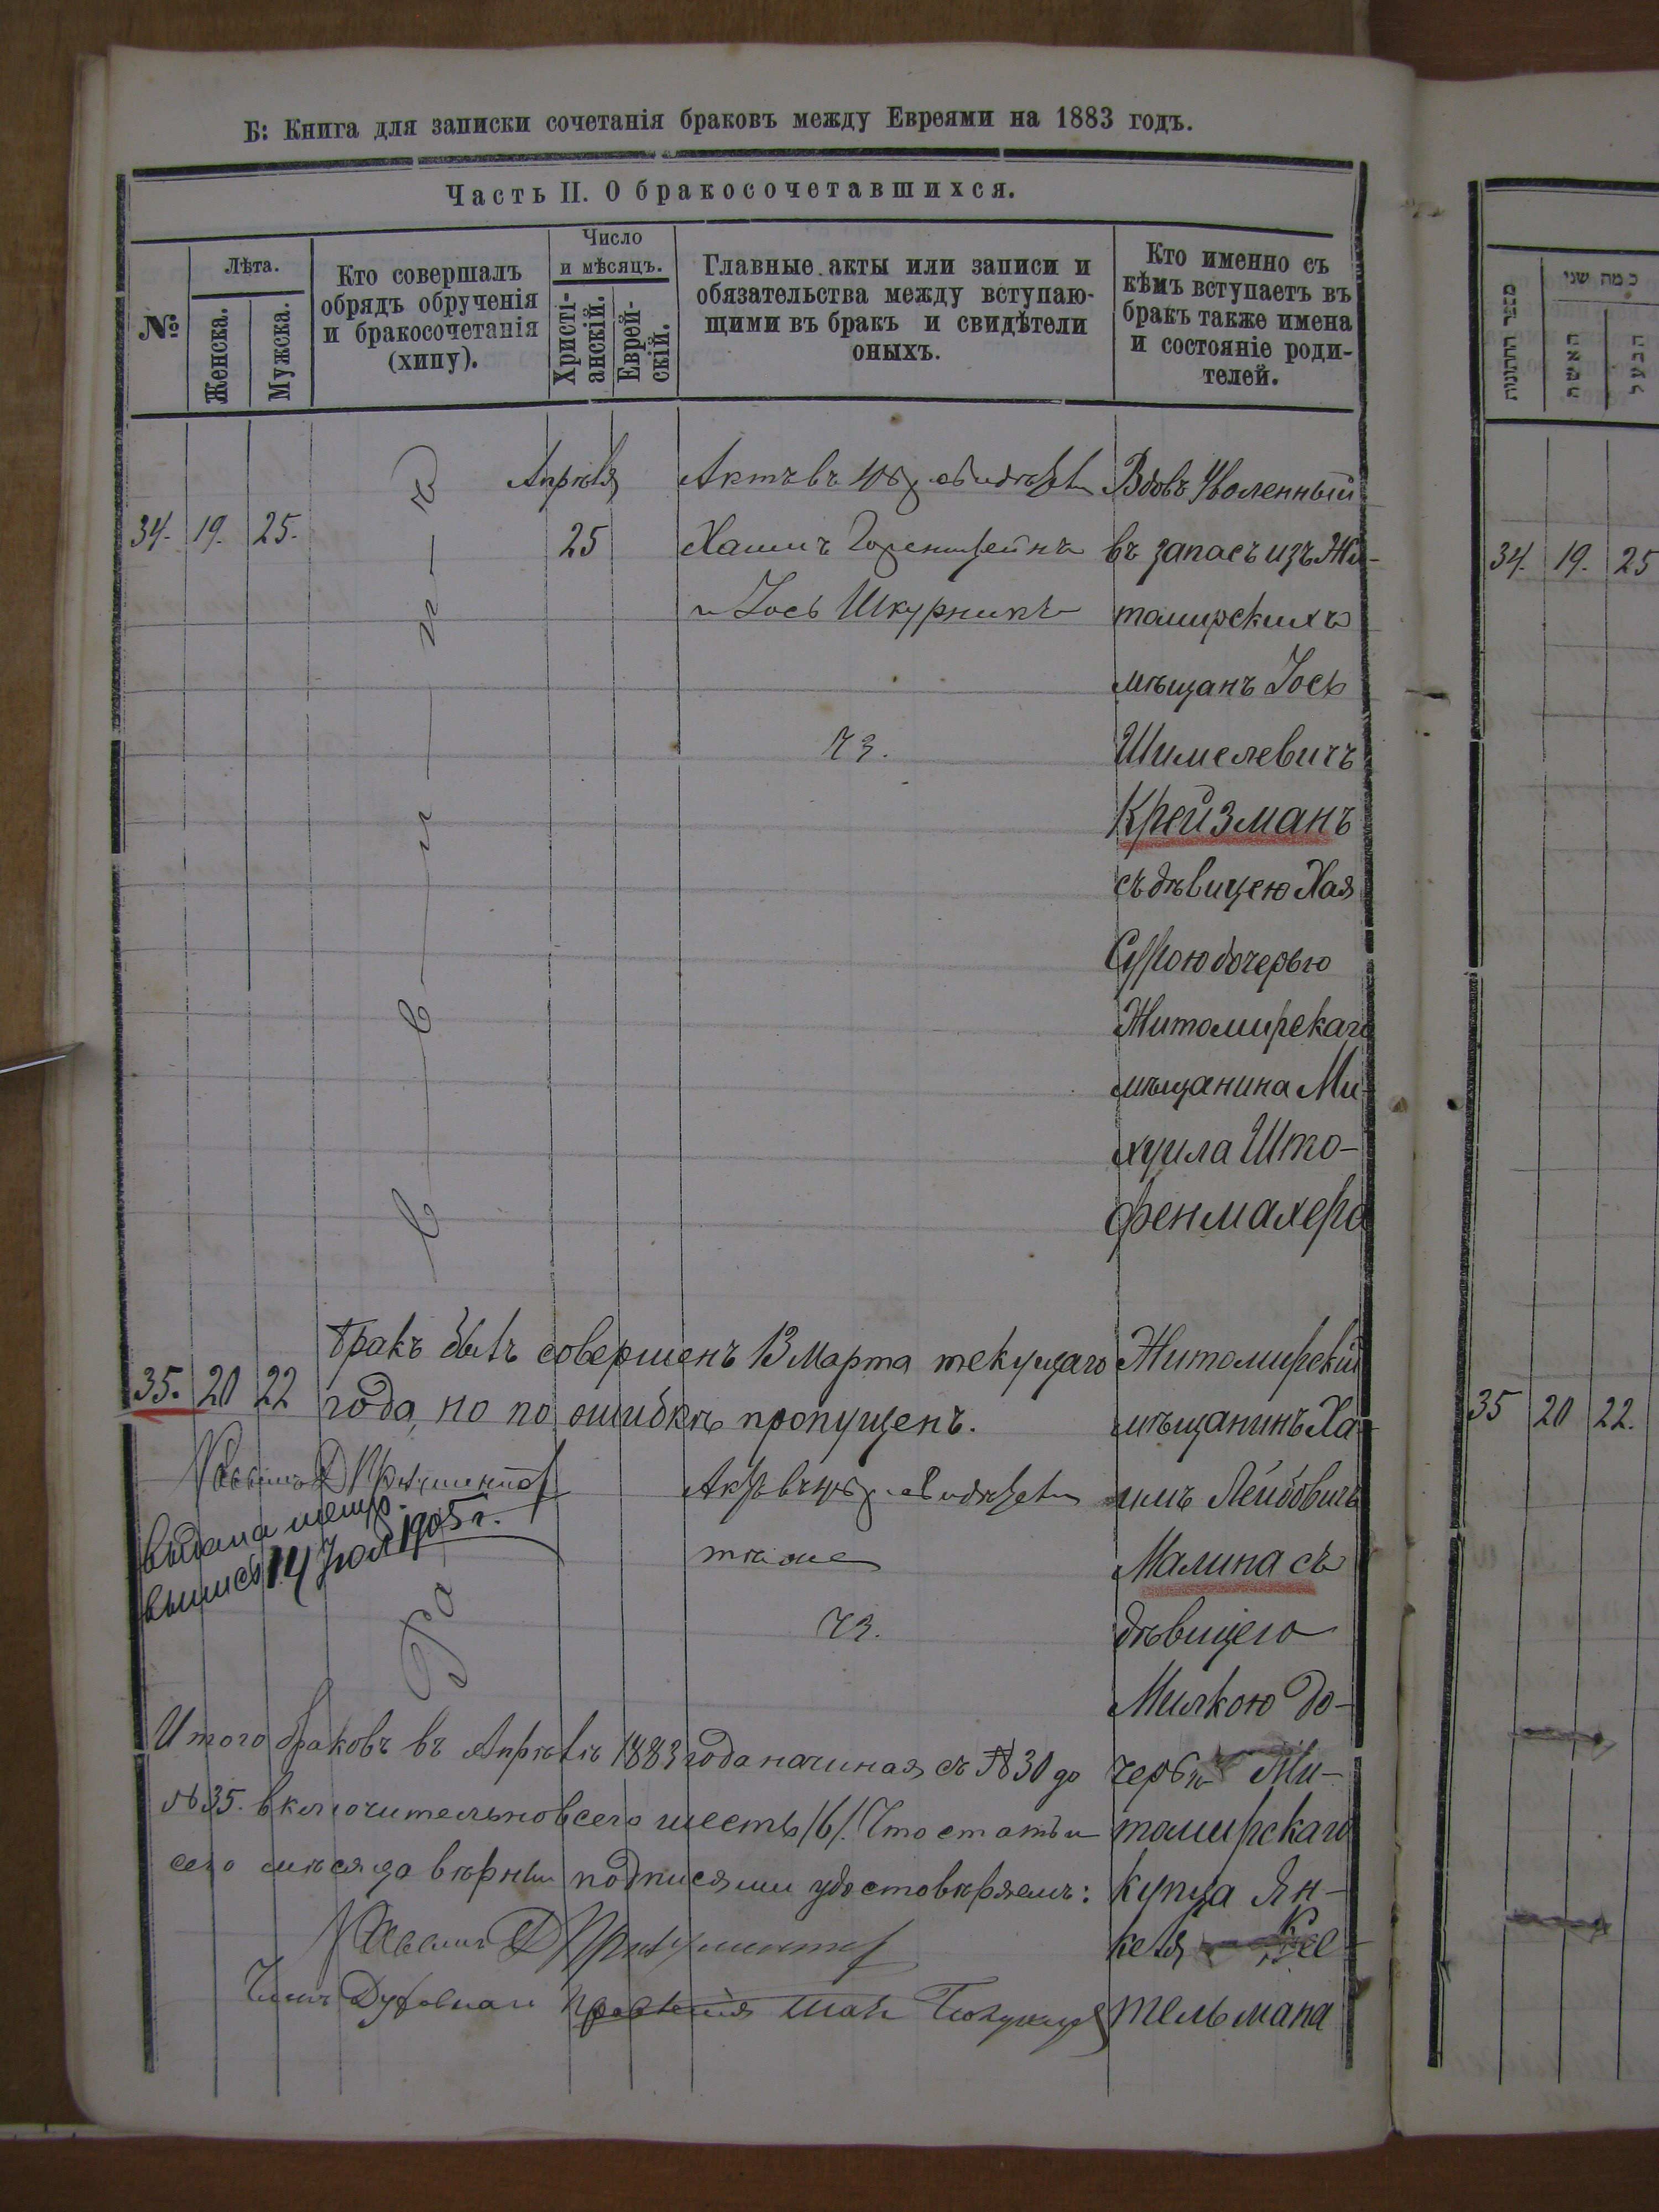 Б: Книга для записки сочетанія браковъ между Евреями на 1883 годъ.
Часть II. О бракосочетавшихся.
№
Лѣта.
Женска.
Мужска.
Кто совершалъ
обрядъ обрученія
и бракосочетанія
(хипу).
Число
и мѣсяцъ.
Христі-
анскій.
Еврей-
скій.
Главные акты или записи и
обязательства между вступаю-
щими въ бракъ и свидѣтели
оныхъ.
Кто именно съ
кѣмъ вступаетъ въ
бракъ также имена
и состояніе роди-
телей.
34. 19. 25.
Апрѣля
25
Актъ въ
и Іось Шкурникъ
73.
Вдовъ Уволенный
въ запасъ изъ Жи-
томирскихъ
мѣщанъ Іось
Шимелевичъ
Крейзманъ
съ дѣвицею Хая
Суррою дочерью
Житомирскаго
мѣщанина Ми-
хуила Што-
фенмахера
35. 20 22
Бракъ былъ совершенъ 13 Марта текущаго
года, но по ошибкѣ пропущенъ.
выдана метр.
выпись 14 1905 г.
тѣ же
73.
Житомирскій
мѣщанинъ Ха-
имъ Лейбовичъ
Малина съ
дѣвицею
Милкою до-
черью Жи-
томирскаго
купца Ян-
келя Кее-
тельмана
Итого браковъ въ Апрѣлѣ 1883 года начиная съ №30 до
№35. включительно всего шесть /6/. Что статьи
сего мѣсяца вѣрны подписями удостовѣряемъ:
Членъ Духовнаго Правленія
מספר החתונות
כמה שני
האשה
הבעל
34. 19. 25
35 20 22.